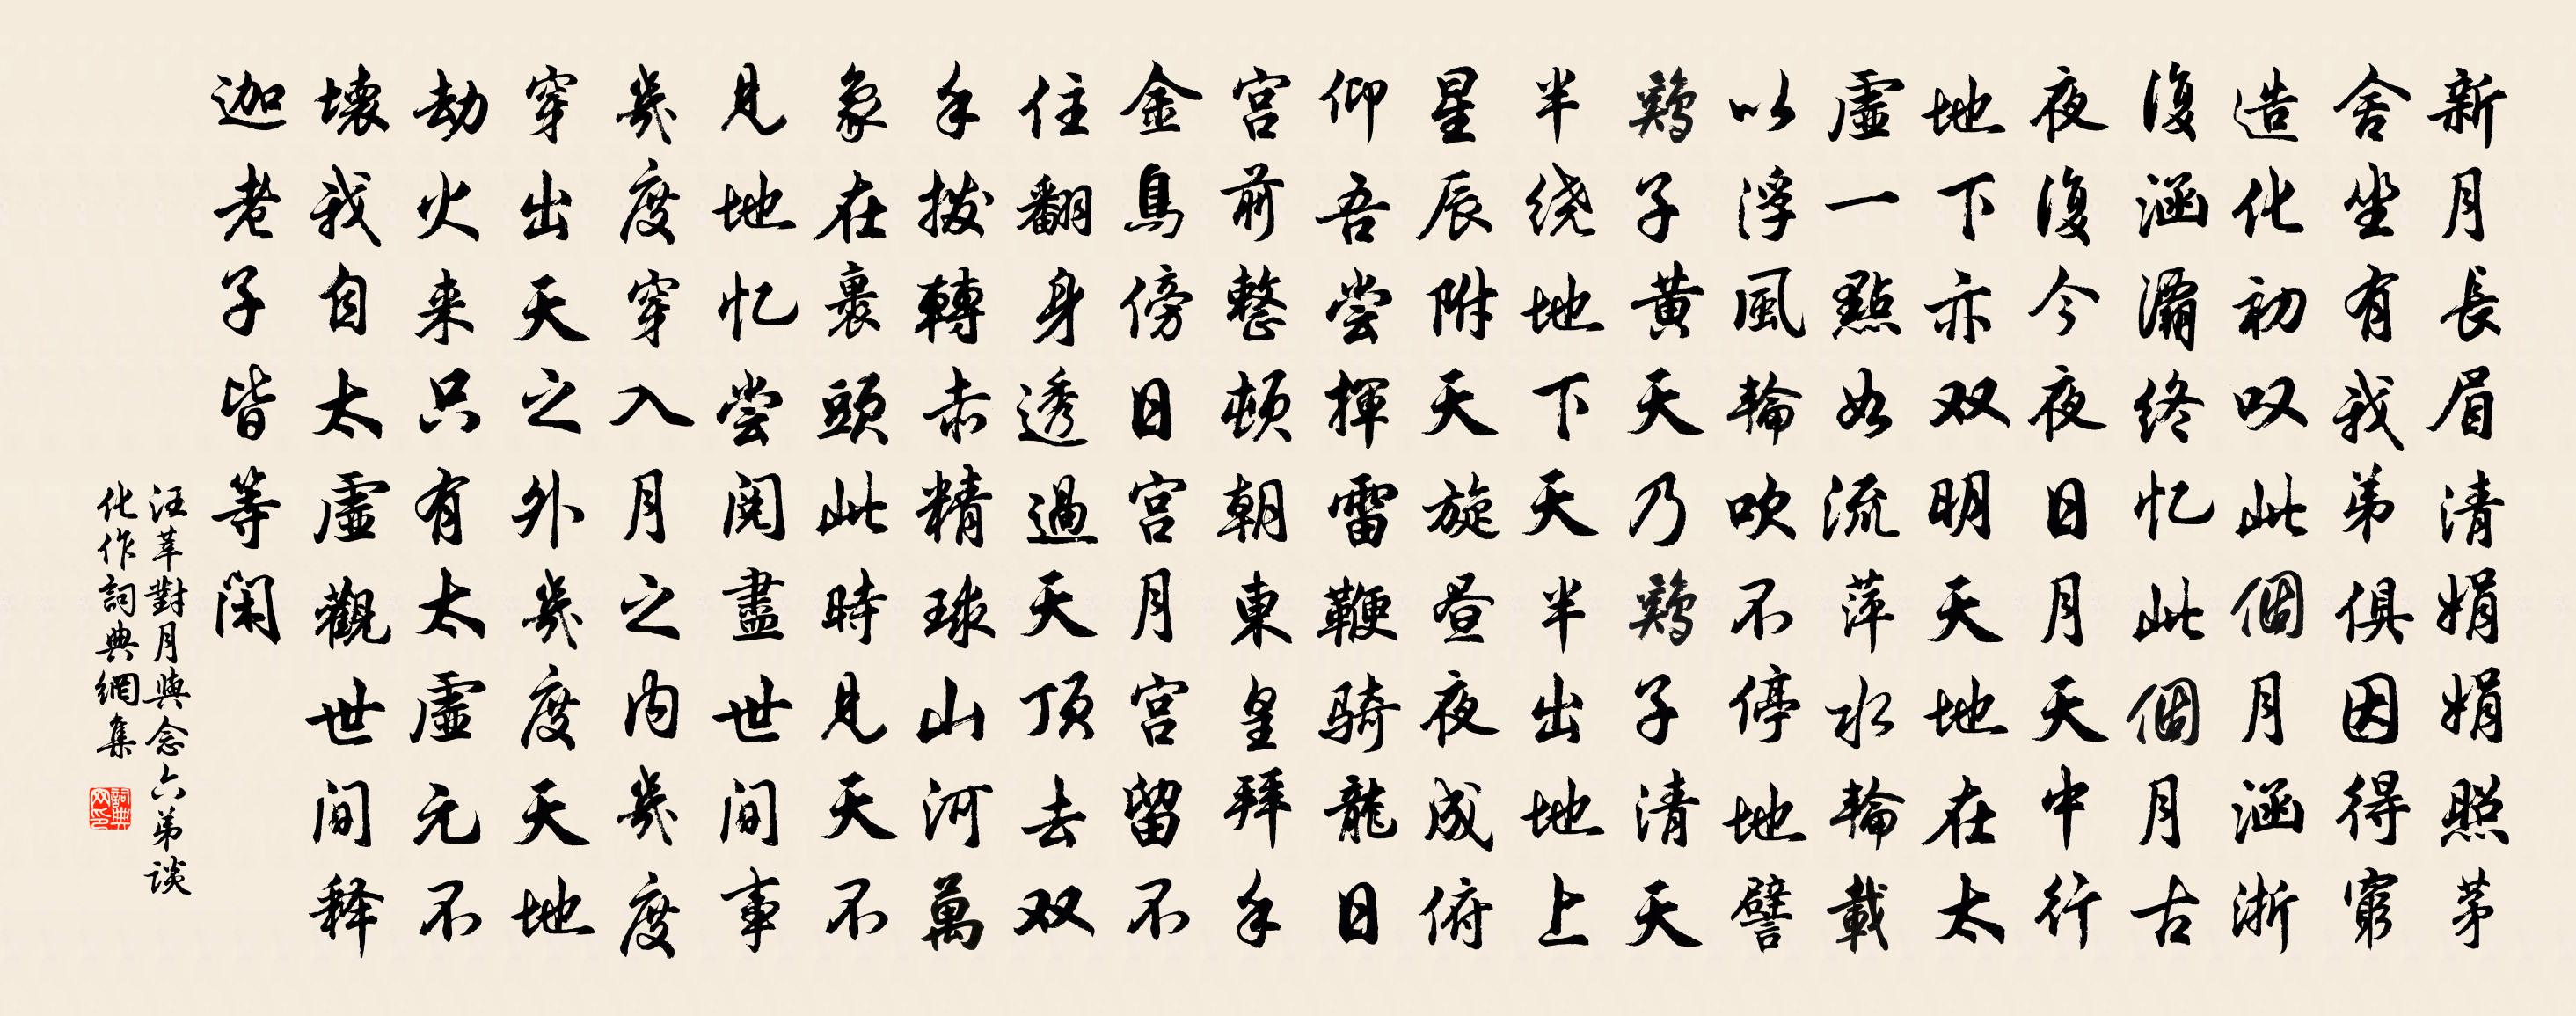 新月長眉清娟娟照茅
舍坐有我弟俱因得窮
造化初叹此個月涵淅
復涵灞终忆此個月古
夜復今夜日月天中行
地下亦双明天地在太
虛一點如流萍水輪載
以浮風輪吹不停地譬
鷄子黄天乃鷄子清天
半绕地下天半出地上
星辰附天旋昼夜成俯
仰吾尝揮雷鞭骑龍日
宫前整頓朝東皇拜手
金烏傍日宫月宫留不
住翻身透過天顶去双
手拨轉赤精球山河萬
象在裏頭此時見天不
見地忆尝閱盡世间事
幾度穿入月之内幾度
穿出天之外幾度天地
劫火来只有太虛元不
壞我自太虛觀世间释
迦老子皆等闲
汪莘對月與念六弟谈
化作詞典網集
詞典网印